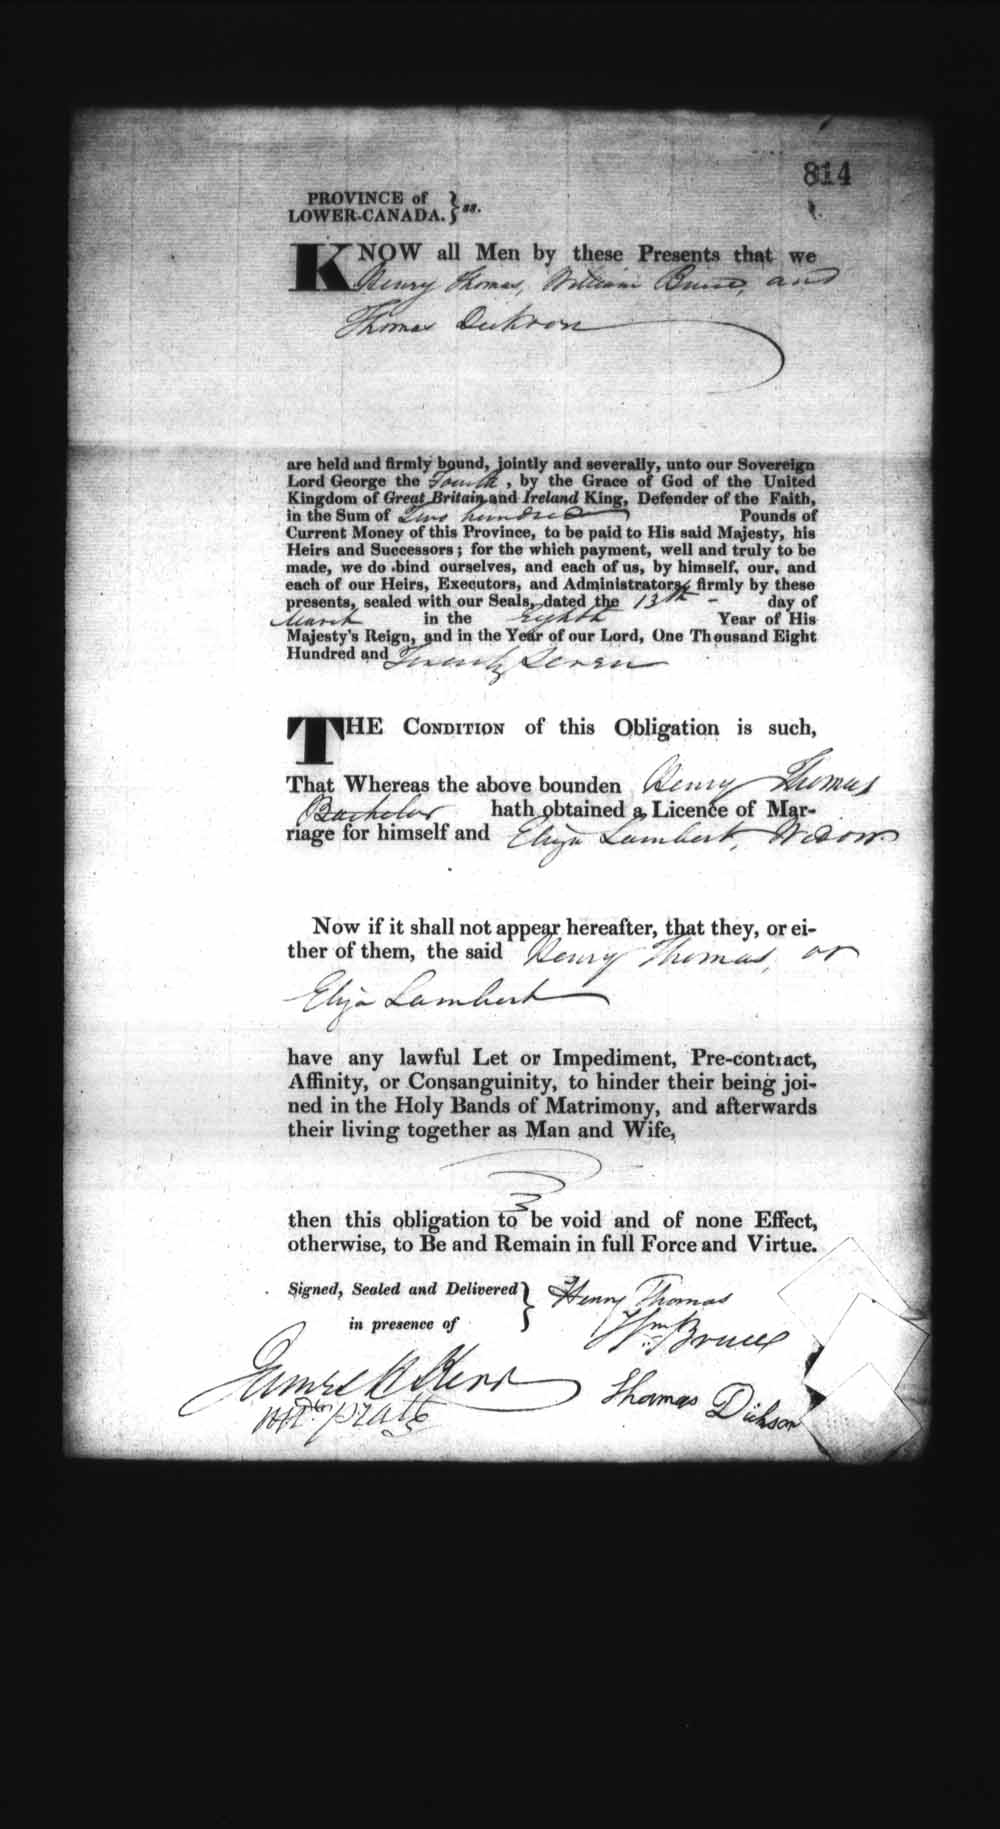 814
PROVINCE of
LOWER-CANADA. } ss.
KNOW all Men by these Presents that we
Henry Thomas, William Bruce, and
Thomas Dickson
are held and firmly bound, jointly and severally, unto our Sovereign
Lord George the Fourth, by the Grace of God of the United
Kingdom of Great Britain and Ireland King, Defender of the Faith,
in the Sum of Two hundred Pounds of
Current Money of this Province, to be paid to His said Majesty, his
Heirs and Successors; for the which payment, well and truly to be
made, we do bind ourselves, and each of us, by himself, our, and
each of our Heirs, Executors, and Administrators, firmly by these
presents, sealed with our Seals, dated the 13th - day of
March in the Eighth Year of His
Majesty's Reign, and in the Year of our Lord, One Thousand Eight
Hundred and Twenty Seven
THE CONDITION of this Obligation is such,
That Whereas the above bounden Henry Thomas
Bachelor hath obtained a Licence of Mar-
riage for himself and Eliza Lambert, Widow.
Now if it shall not appear hereafter, that they, or ei-
ther of them, the said Henry Thomas, or
Eliza Lambert
have any lawful Let or Impediment, Pre-contract,
Affinity, or Consanguinity, to hinder their being joi-
ned in the Holy Bands of Matrimony, and afterwards
their living together as Man and Wife,
then this obligation to be void and of none Effect,
otherwise, to Be and Remain in full Force and Virtue.
Signed, Sealed and Delivered } Henry Thomas
in presence of
Wm Bruce
James H Kerr
Thomas Dickson
Pratt